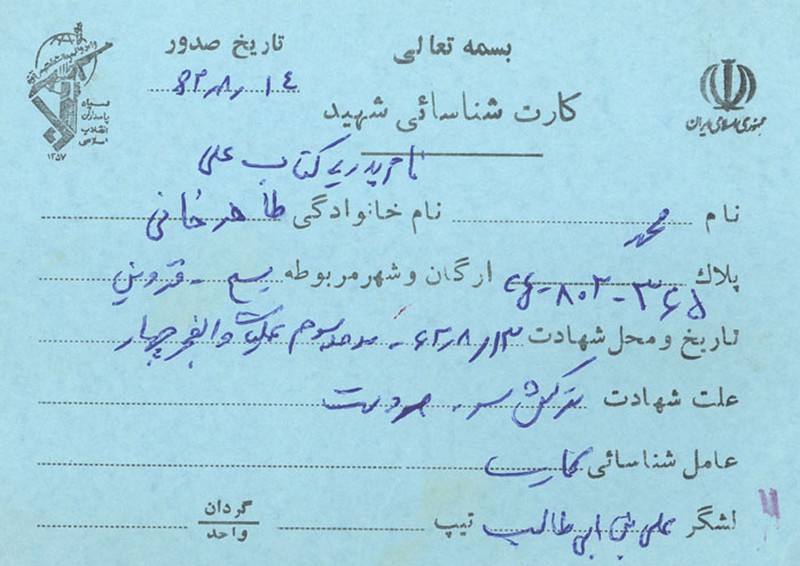 بسمه تعالی
تاریخ صدور
۶۲٫۸٫۱۴
جمهوری اسلامی ایران
سپاه پاسداران انقلاب اسلامی
۱۳۵۷
کارت شناسائی شهید
نام پدر کتاب علی
نام محمد نام خانوادگی طاهرخانی
پلاک ۳۶۵-۸۰۲- ارگان و شهر مربوطه بسیج - قزوین
تاریخ و محل شهادت ۶۲٫۸٫۱۳ - مرحله سوم عملیات والفجر چهار
علت شهادت ترکش سر - و دست
عامل شناسائی کارت
لشگر علی بن ابی طالب تیپ گردان
واحد